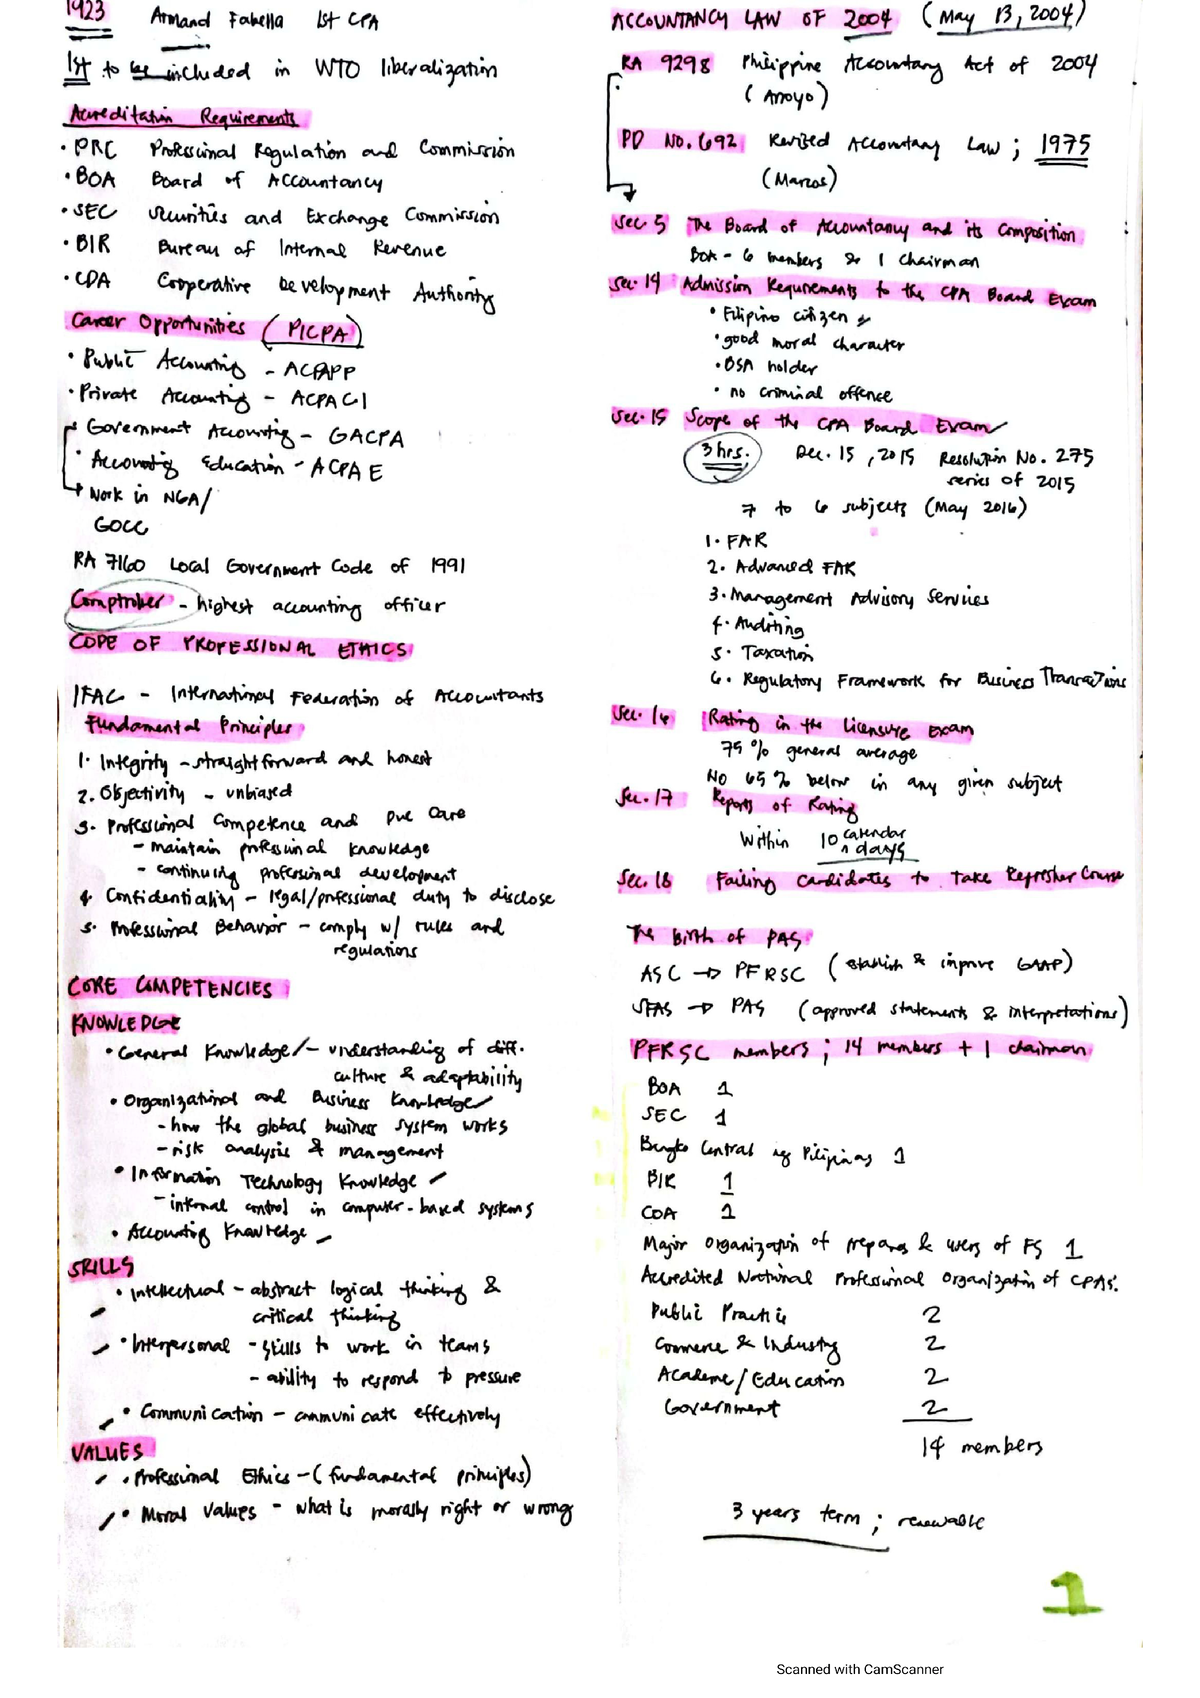 1923 Armand Fabella 1st CPA
1st to be included in WTO liberalization
Accreditation Requirements
• PRC Professional Regulation and Commission
• BOA Board of Accountancy
• SEC Securities and Exchange Commission
• BIR Bureau of Internal Revenue
• CDA Cooperative Development Authority
Career Opportunities (PICPA)
• Public Accounting - ACPAPP
• Private Accounting - ACPACI
Government Accounting - GACPA
• Accounting Education - ACPAE
Work in NGA/
GOCC
RA 7160 Local Government Code of 1991
Comptroller - highest accounting officer
CODE OF PROFESSIONAL ETHICS
IFAC - International Federation of Accountants
Fundamental Principles
1. Integrity - straight forward and honest
2. Objectivity - unbiased
3. Professional Competence and Due Care
- maintain professional knowledge
- continuing professional development
4. Confidentiality - legal/professional duty to disclose
5. Professional Behavior - comply w/ rules and
regulations
CORE COMPETENCIES
KNOWLEDGE
• General Knowledge - understanding of diff.
culture & adaptability
• Organizational and Business Knowledge
- how the global business system works
- risk analysis & management
• Information Technology Knowledge
- internal control in computer-based systems
• Accounting Knowledge
SKILLS
• Intellectual - abstract logical thinking &
critical thinking
• Interpersonal - skills to work in teams
- ability to respond to pressure
• Communication - communicate effectively
VALUES
• Professional Ethics - (fundamental principles)
• Moral Values - what is morally right or wrong
ACCOUNTANCY LAW OF 2004 (May 13, 2004)
RA 9298 Philippine Accountancy Act of 2004
(Arroyo)
PD No. 692 Revised Accountancy Law ; 1975
(Marcos)
Sec. 5 The Board of Accountancy and its Composition
BOA - 6 members & 1 chairman
Sec. 14 Admission Requirements to the CPA Board Exam
• Filipino citizen
• good moral character
• BSA holder
• no criminal offence
Sec. 15 Scope of the CPA Board Exam
3 hrs. Dec. 15, 2015 Resolution No. 275
series of 2015
7 to 6 subjects (May 2016)
1. FAR
2. Advanced FAR
3. Management Advisory Services
4. Auditing
5. Taxation
6. Regulatory Framework for Business Transactions
Sec. 16 Rating in the Licensure Exam
75% general average
No 65% below in any given subject
Sec. 17 Reports of Rating
Within 10 calendar days
Sec. 18 Failing Candidates to Take Refresher Course
The Birth of PAS
ASC → PFRSC (establish & improve GAAP)
SFAS → PAS (approved statements & interpretations)
PFRSC members ; 14 members + 1 chairman
BOA 1
SEC 1
Bangko Central ng Pilipinas 1
BIR 1
COA 1
Major organization of prepares & users of FS 1
Accredited National Professional Organization of CPAs:
Public Practice 2
Commerce & Industry 2
Academe/Education 2
Government 2
14 members
3 years term ; renewable
1
Scanned with CamScanner